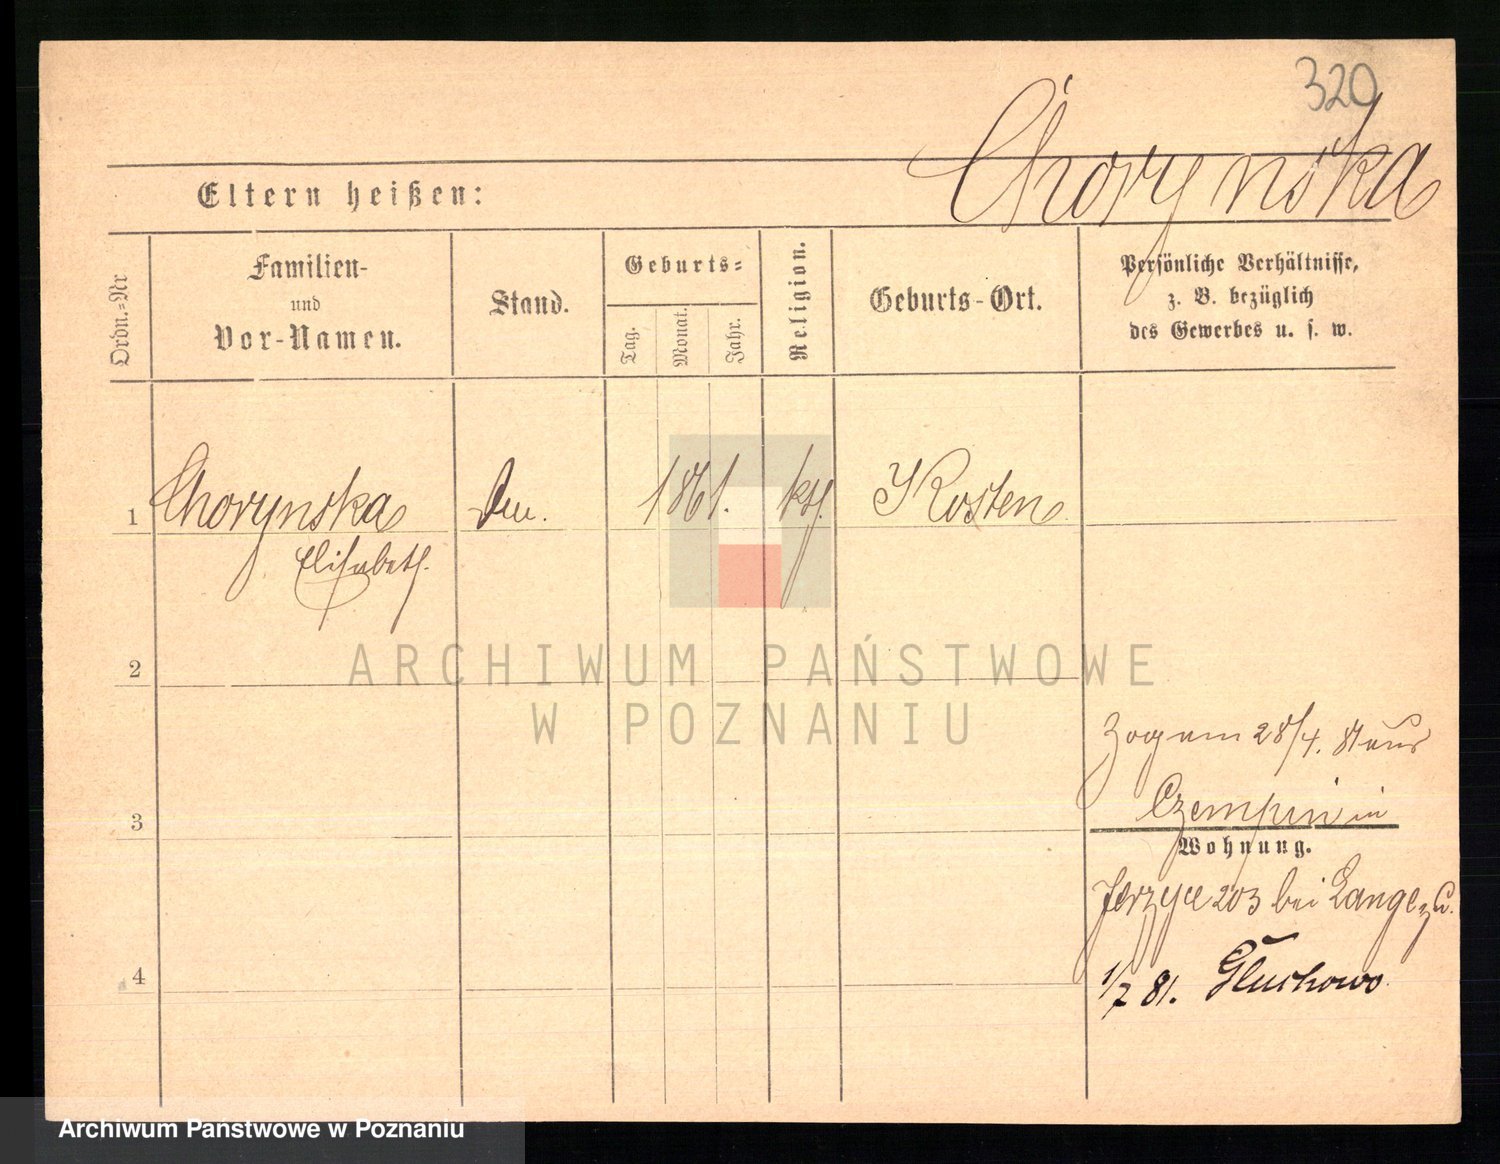 320
Chorynska
Eltern heißen:
Ordn.=Nr
Familien-
und
Vor-Namen.
Stand.
Geburts=
Tag.
Monat.
Jahr.
Religion.
Geburts-Ort.
Persönliche Verhältnisse,
z. B. bezüglich
des Gewerbes u. s. w.
1 Chorynska 1861. kth. Kosten
Elisabeth.
2
ARCHIWUM PAŃSTWOWE
W POZNANIU
Zog am 28/4. 81 aus
Czempin in
3
Wohnung.
Jerzyce 203 bei Lange
4
1/7 81. Gluchowo.
Archiwum Państwowe w Poznaniu